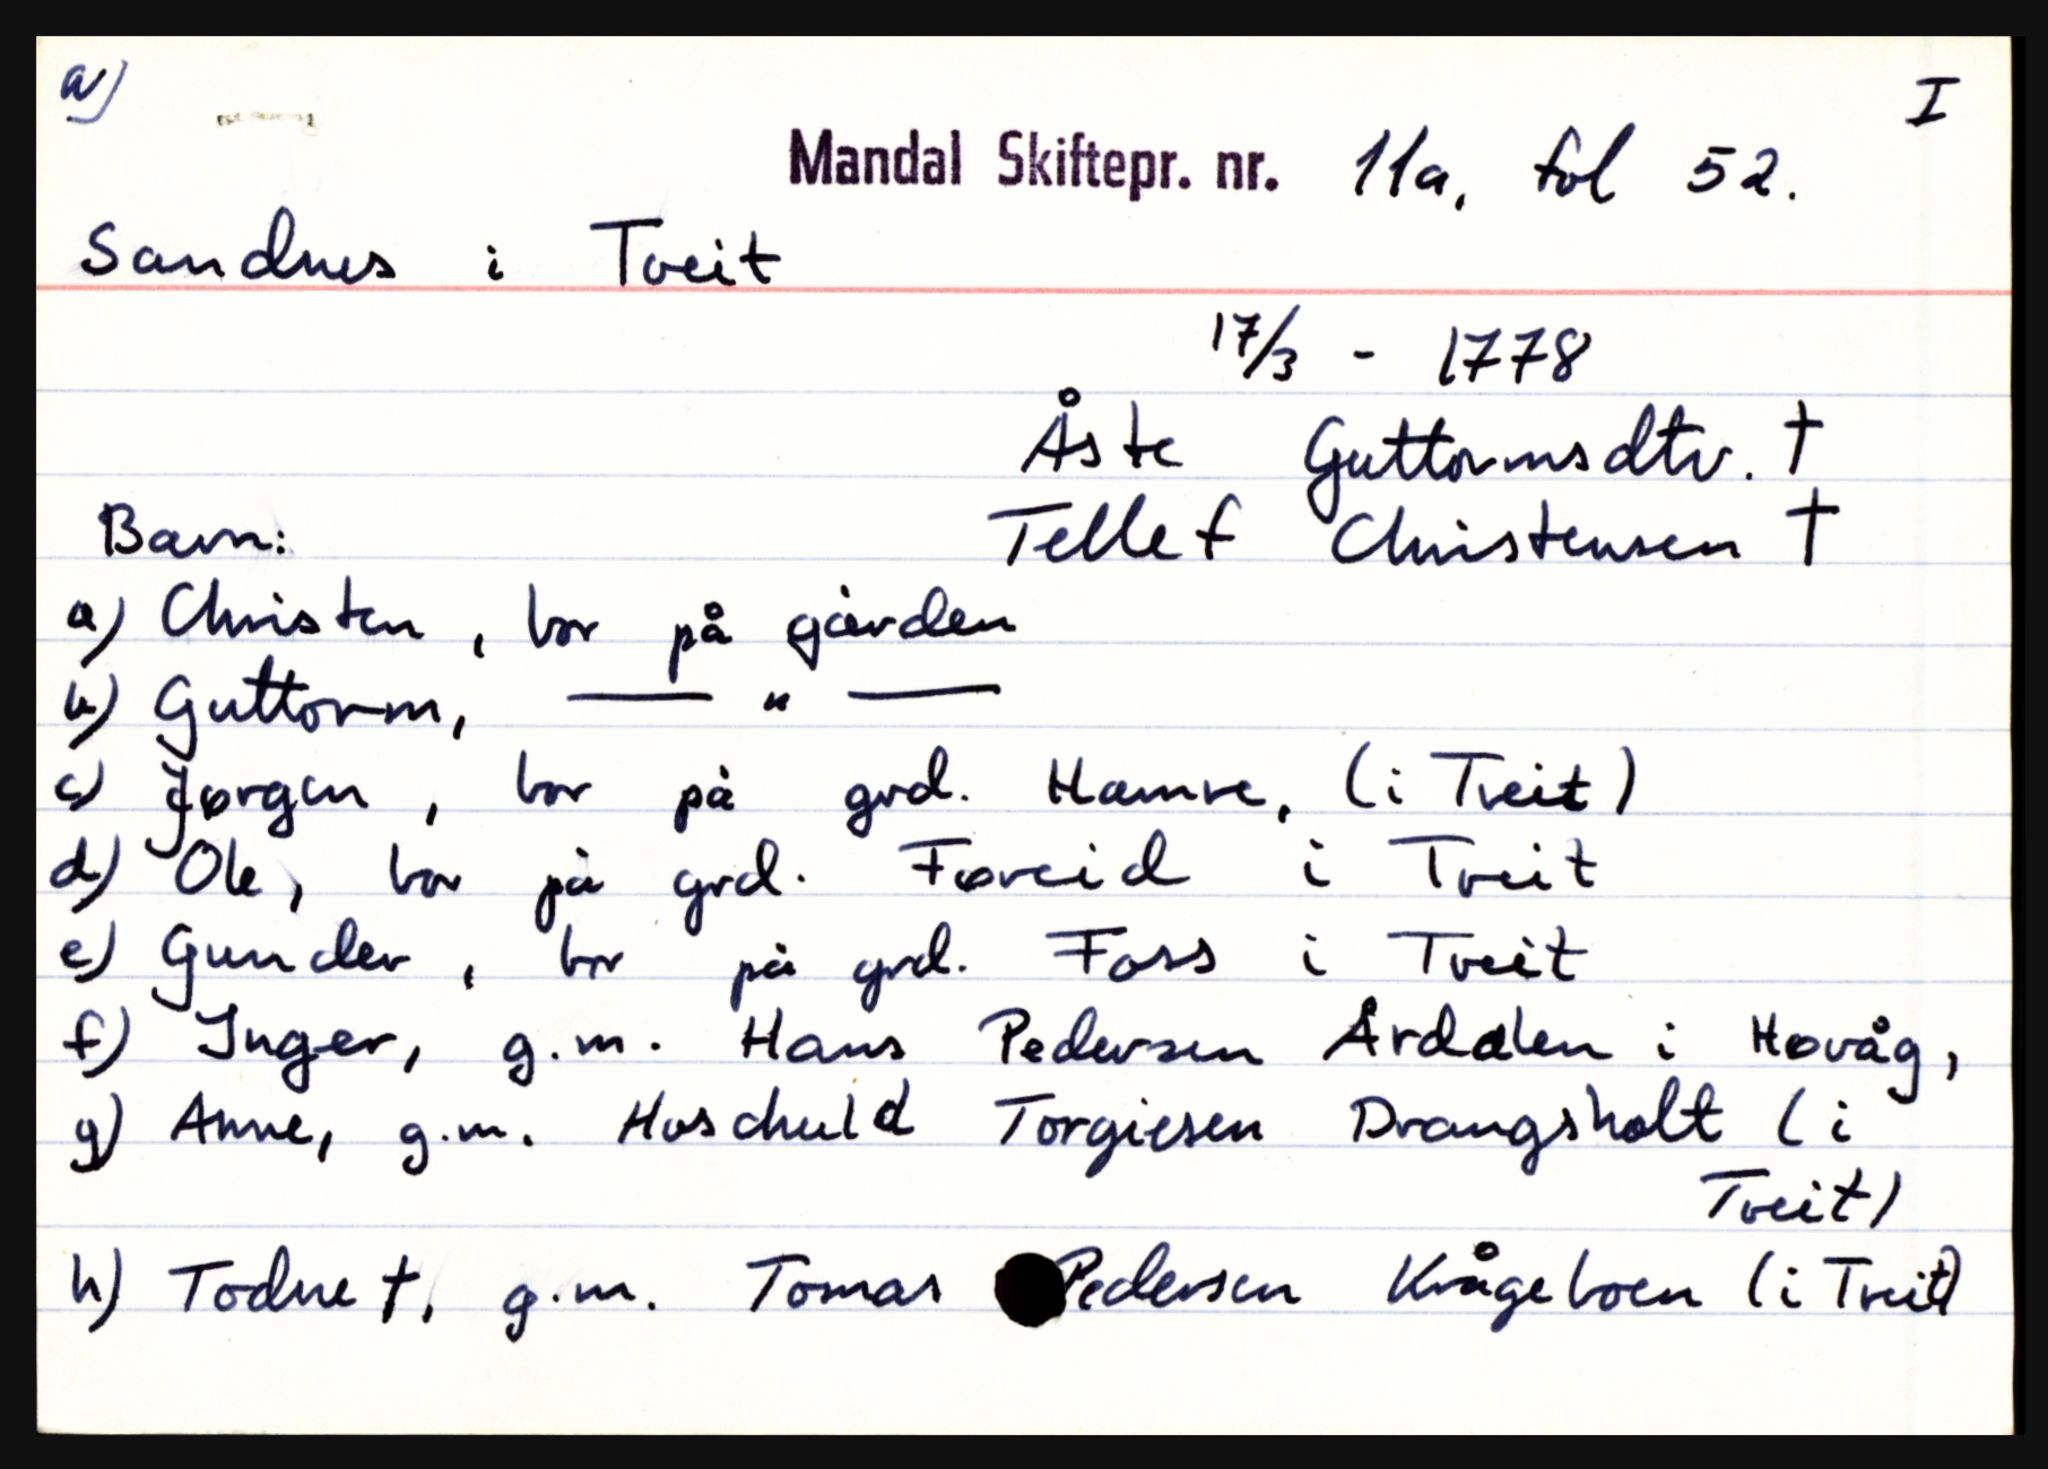 a) I
Mandal Skiftepr. nr. 11a, fol 52.
Sandnes i Tveit
17/3 - 1778
Åste Guttormsdtr. †
Barn: Tellef Christensen †
a) Christen, bor på gården
b) Guttorm, — " —
c) Jørgen, bor på grd. Hamre, (i Tveit)
d) Ole, bor på grd. Føreid i Tveit
e) Gunder, bor på grd. Foss i Tveit
f) Inger, g.m. Hans Pedersen Årdalen i Høvåg,
g) Anne, g.m. Hoschuld Torgiesen Drangsholt (i
Tveit)
h) Todne †, g.m. Tomas Pedersen Krågeboen (i Tveit)